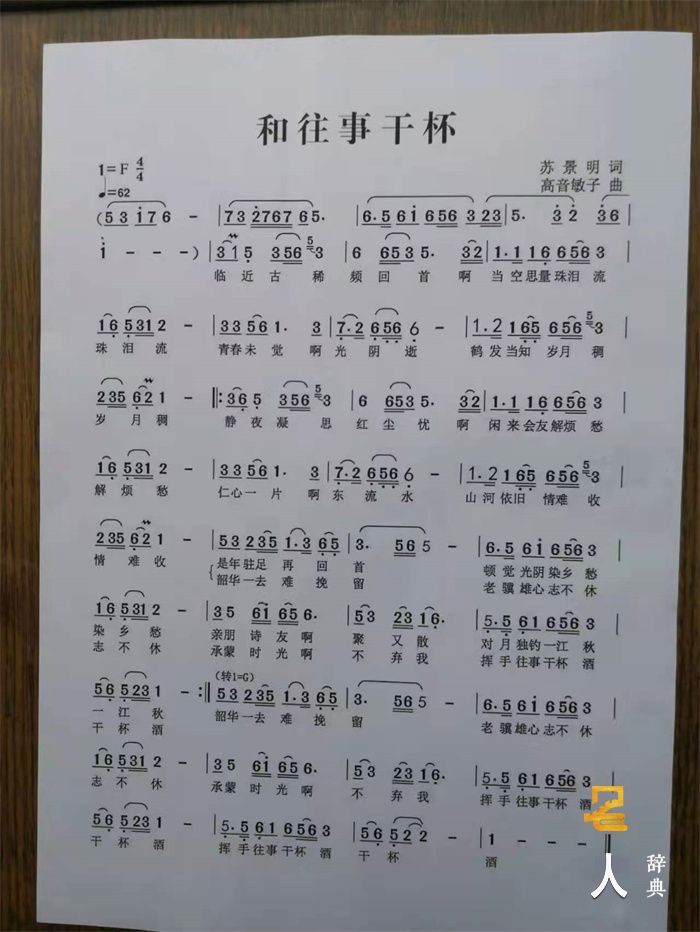 和往事干杯
1=F 4/4
苏景明 词
♩=62
高音敏子 曲
(5 3 i 7 6 - | 7 3 2 7 6 7 6 5. | 6. 5 6 1 6 5 6 3 2 3 | 5. 3 2 3 6
1 - - - ) | 3 1 5 3 5 6 3 | 6 6 5 3 5. 3 2 | 1. 1 1 6 5 6 3 2 |
临近古稀 频回首 啊 当空思量珠泪流
1 6 5 3 1 2 - | 3 3 5 6 1. 3 | 7. 2 6 5 6 - | 1. 2 1 6 5 5 6 2 3 |
珠泪流 青春未觉 啊光阴逝 鹤发当知 岁月稠
2 3 5 6 2 1 - ‖: 3 6 5 3 5 6 3 | 6 6 5 3 5. 3 2 | 1. 1 1 6 5 6 3 |
岁月稠 静夜凝思 红尘忧 啊 闲来会友解烦愁
1 6 5 3 1 2 - | 3 3 5 6 1. 3 | 7. 2 6 5 6 - | 1. 2 1 6 5 5 6 2 3 |
解烦愁 仁心一片 啊东流水 山河依旧 情难收
2 3 5 6 2 1 - | 5 3 2 3 5 1. 3 6 5 | 3. 5 6 5 - | 6. 5 6 1 6 5 6 3 |
情难收 是年驻足再回首 顿觉光阴染乡愁
韶华一去难挽留 老骥雄心志不休
1 6 5 3 1 2 - | 3 5 6 1 6 5 6. | 5 3 2 3 1 6. | 5. 5 6 1 6 5 6 3 |
染乡愁 亲朋诗友啊 聚又散 对月独钓一江秋
志不休 承蒙时光啊 不弃我 挥手往事干杯酒
(转1=G)
5 6 5 2 3 1 - :‖ 5 3 2 3 5 1. 3 6 5 | 3. 5 6 5 - | 6. 5 6 1 6 5 6 3 |
一江秋 韶华一去难挽留 老骥雄心志不休
干杯酒
1 6 5 3 1 2 - | 3 5 6 1 6 5 6. | 5 3 2 3 1 6. | 5. 5 6 1 6 5 6 3 |
志不休 承蒙时光啊 不弃我 挥手往事干杯酒
5 6 5 2 3 1 - | 5. 5 6 1 6 5 6 3 | 5 6 5 2 2 - | 1 - - - ‖
干杯酒 挥手往事干杯酒 干杯 酒
名人
辞典